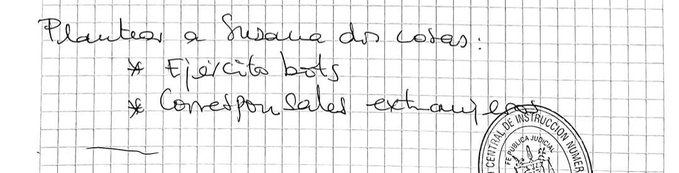 Plantear a Susana dos cosas:
* Ejército bots
* Corresponsales extranjeros
CENTRAL DE INSTRUCCION NUMER
FE PUBLICA JUDICIAL